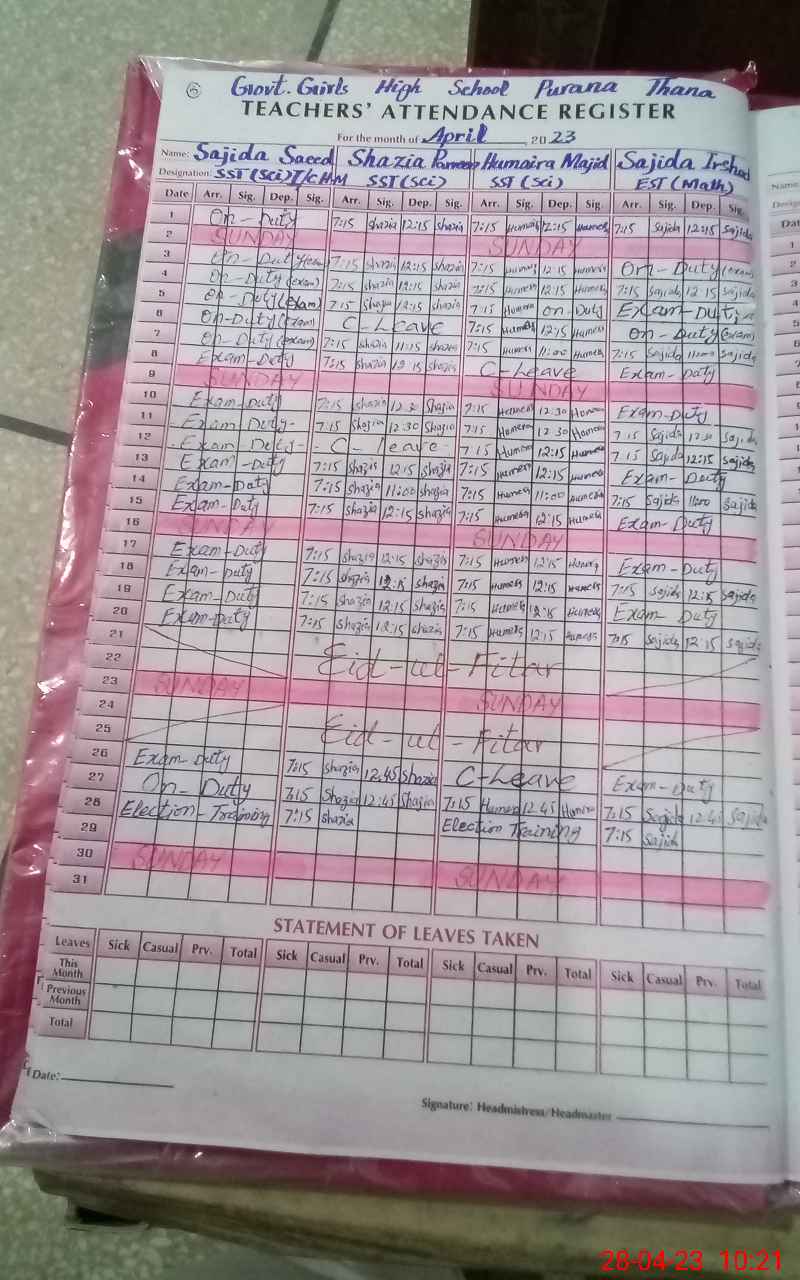 6 Govt. Girls High School Purana Thana
TEACHERS' ATTENDANCE REGISTER
For the month of April, 2023
Name: Sajida Saeed Shazia Parveen Humaira Majid Sajida Irshad
Designation: SST (Sci) I/C H.M SST (Sci) SST (Sci) EST (Math)
Date Arr. Sig. Dep. Sig. Arr. Sig. Dep. Sig. Arr. Sig. Dep. Sig. Arr. Sig. Dep. Sig.
1 On-Duty 7:15 Shazia 12:15 Shazia 7:15 Humera 12:15 Humera 7:15 Sajida 12:15 Sajida
2 SUNDAY SUNDAY
3 On-Duty (exam) 7:15 Shazia 12:15 Shazia 7:15 Humera 12:15 Humera On-Duty (exam)
4 On-Duty (exam) 7:15 Shazia 12:15 Shazia 7:15 Humera 12:15 Humera 7:15 Sajida 12:15 Sajida
5 On-Duty (exam) 7:15 Shazia 12:15 Shazia 7:15 Humera On-Duty Exam-Duty
6 On-Duty (exam) C-Leave 7:15 Humera 12:15 Humera On-Duty (exam)
7 On-Duty (exam) 7:15 Shazia 11:15 Shazia 7:15 Humera 11:00 Humera 7:15 Sajida 11:00 Sajida
8 Exam-Duty 7:15 Shazia 12:15 Shazia C-Leave Exam-Duty
9 SUNDAY SUNDAY
10 Exam-Duty 7:15 Shazia 12:30 Shazia 7:15 Humera 12:30 Humera Exam-Duty
11 Exam-Duty- 7:15 Shazia 12:30 Shazia 7:15 Humera 12:30 Humera 7:15 Sajida 12:30 Sajida
12 Exam-Duty- C-leave 7:15 Humera 12:15 Humera 7:15 Sajida 12:15 Sajida
13 Exam-Duty 7:15 Shazia 12:15 Shazia 7:15 Humera 12:15 Humera Exam-Duty
14 Exam-Duty 7:15 Shazia 11:00 Shazia 7:15 Humera 11:00 Humera 7:15 Sajida 11:00 Sajida
15 Exam-Duty 7:15 Shazia 12:15 Shazia 7:15 Humera 12:15 Humera Exam-Duty
16 SUNDAY SUNDAY
17 Exam-Duty 7:15 Shazia 12:15 Shazia 7:15 Humera 12:15 Humera Exam-Duty
18 Exam-Duty 7:15 Shazia 12:15 Shazia 7:15 Humera 12:15 Humera 7:15 Sajida 12:15 Sajida
19 Exam-Duty 7:15 Shazia 12:15 Shazia 7:15 Humera 12:15 Humera Exam Duty
20 Exam-Duty 7:15 Shazia 12:15 Shazia 7:15 Humera 12:15 Humera 7:15 Sajida 12:15 Sajida
21
22 Eid-ul-Fitar
23 SUNDAY SUNDAY
24
25 Eid-ul-Fitar
26 Exam Duty 7:15 Shazia 12:45 Shazia C-Leave Exam-Duty
27 On-Duty 7:15 Shazia 12:45 Shazia 7:15 Humera 12:45 Humera 7:15 Sajida 12:45 Sajida
28 Election-Training 7:15 Shazia Election Training 7:15 Sajida
29
30 SUNDAY SUNDAY
31
STATEMENT OF LEAVES TAKEN
Leaves Sick Casual Prv. Total Sick Casual Prv. Total Sick Casual Prv. Total Sick Casual Prv. Total
This Month
Previous Month
Total
Date:
Signature: Headmistress/Headmaster
28-04-23 10:21